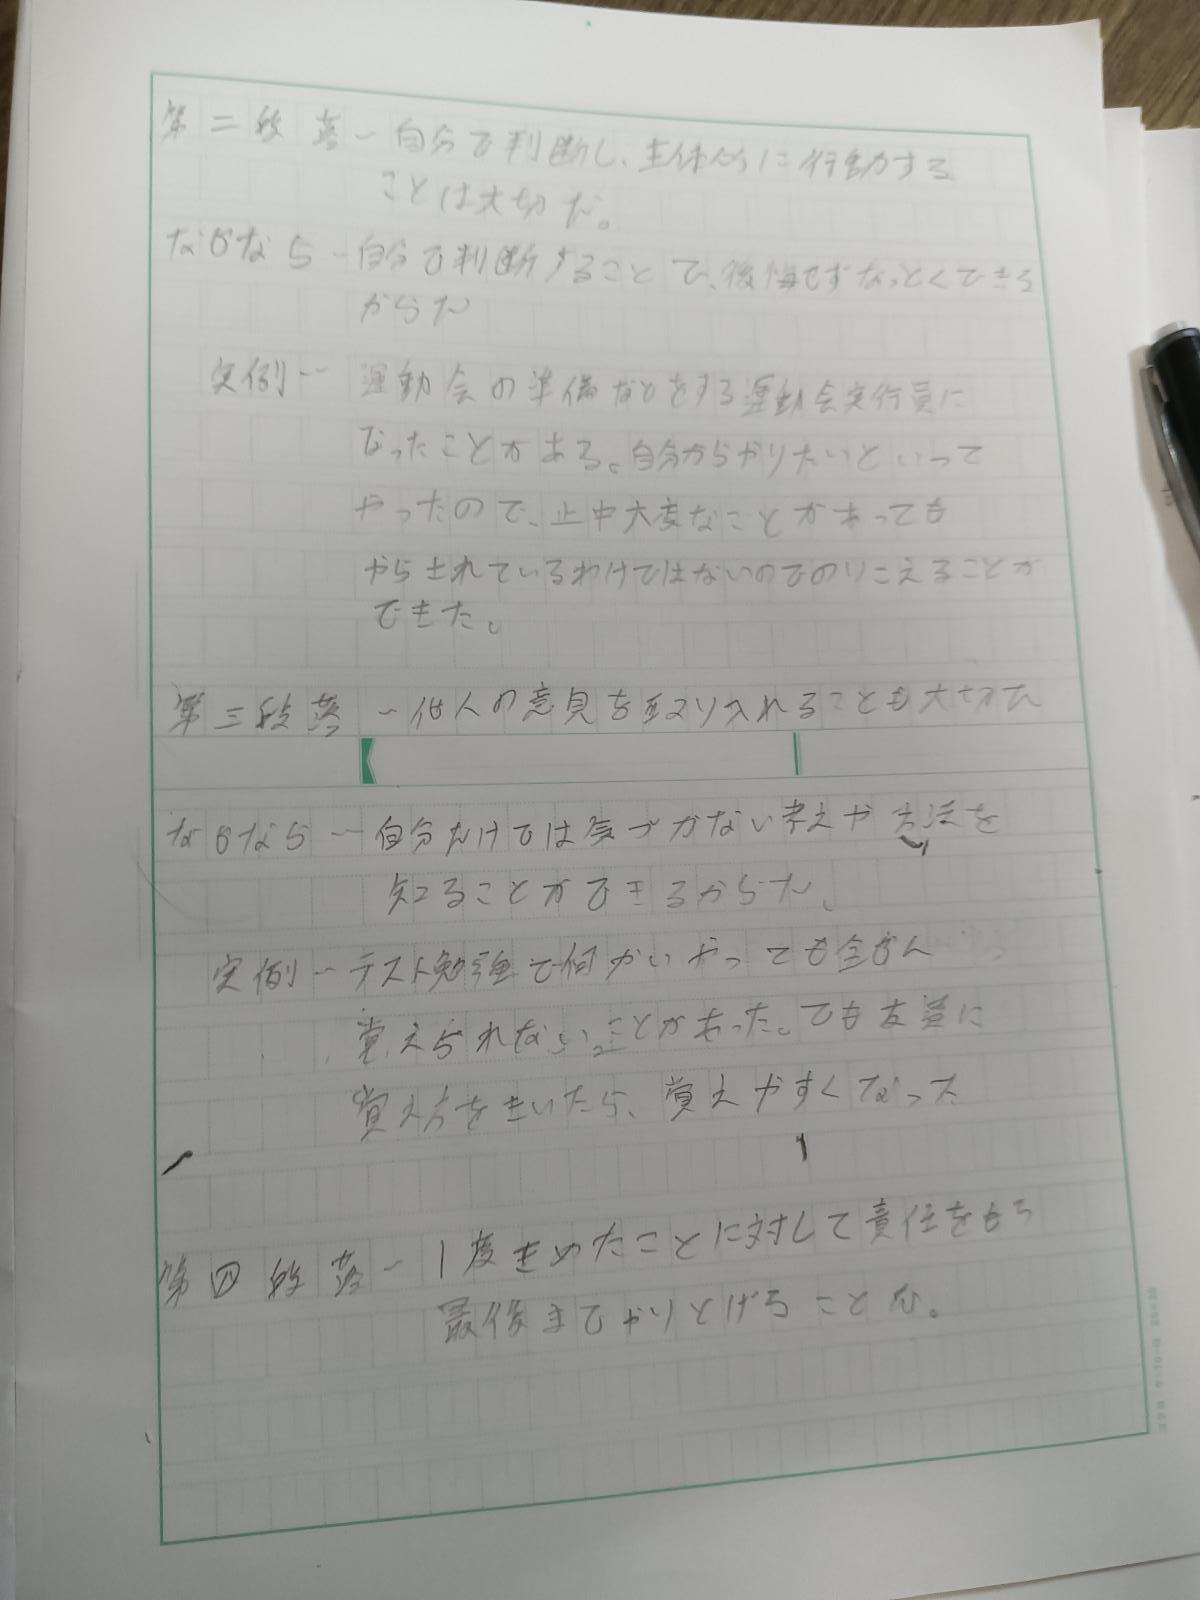 第二段落ー自分で判断し、主体的に行動する
ことは大切だ。
なぜならー自分で判断することで、後悔せずなっとくできる
からだ
実例ー運動会の準備などをする運動会実行員に
なったことがある。自分からやりたいといって
やったので、止中大変なことがあっても
やらされているわけではないのでのりこえることが
できた。
第三段落ー他人の意見を取り入れることも大切だ
なぜならー自分だけでは気づかない考えや方法を
知ることができるからだ。
実例ーテスト勉強で何かいやっても全ぜん
覚えられないことがあった。でも友達に
覚え方をきいたら、覚えやすくなった
第四段落ー1度きめたことに対して責任をもち
最後までやりとげることだ。